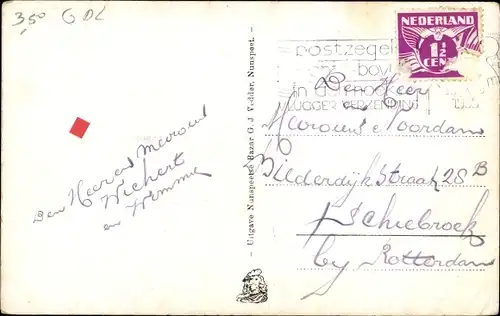 3,50 G DL
Den Heer en Mevrouw
Wichert
en Wimmie
- Uitgave Nunspeetse Bazar G. J. Vedder, Nunspeet. -
NEDERLAND
1½
CENT
postzegel
boven
in de
VLUGGER VERZENDING
Den Heer
Mevrouw Noordam
Bilderdijk Straat 28 B
Schiebroek
by Rotterdam